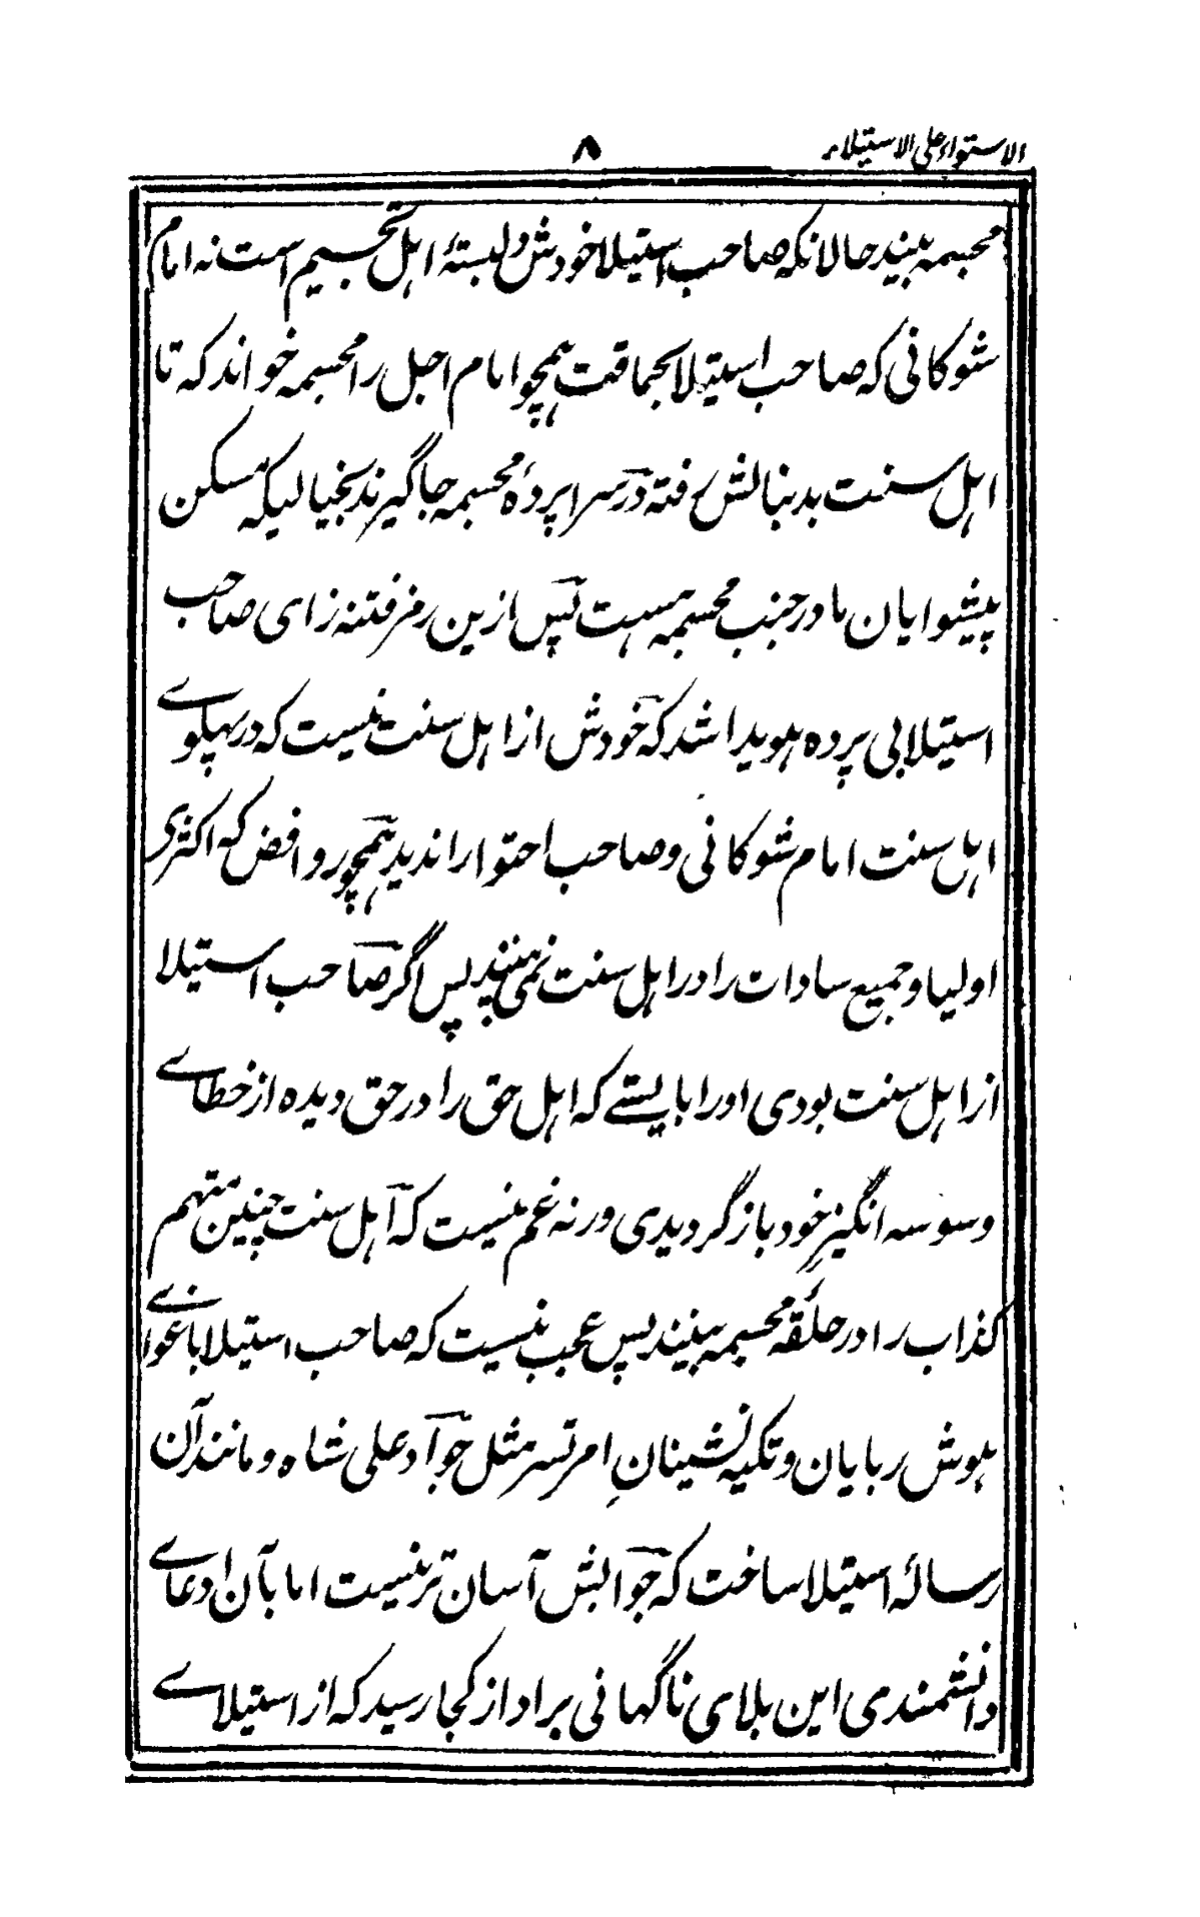 الاستواء على الاستيلاء
٨
مجسمه بیند حالانکه صاحب استیلا خودش دلبستهٔ اهل تجسیم است نه امام
شوکانی که صاحب استیلا بحماقت همچو امام اجل را مجسمه خواند که تا
اهل سنت بدنبالش رفته در سراپردهٔ مجسمه جا گیرند بخیالیکه مسکن
پیشوایان ما در جنب مجسمه هست پس ازین رمز فتنه زای صاحب
استیلا بی پرده هویدا شد که خودش از اهل سنت نیست که در پهلوے
اهل سنت امام شوکانی و صاحب احتوا را ندید همچو روافض که اکثری
اولیا و جمیع سادات را در اهل سنت نمی بینند پس اگر صاحب استیلا
از اهل سنت بودی او را بایستے که اهل حق را در حق دیده از خطاے
وسوسه انگیز خود باز گردیدی ورنه غم نیست که اهل سنت چنین متهم
کذاب را در حلقه مجسمه بینند پس عجب نیست که صاحب استیلا باغواے
هوش ربایان و تکیه نشینانِ امرتسر مثل جواد علی شاه و مانند آن
رسالهٔ استیلا ساخت که جوابش آسان تر نیست اما بآن ادعاے
دانشمندی این بلای ناگهانی برا و از کجا رسید که از استیلاے